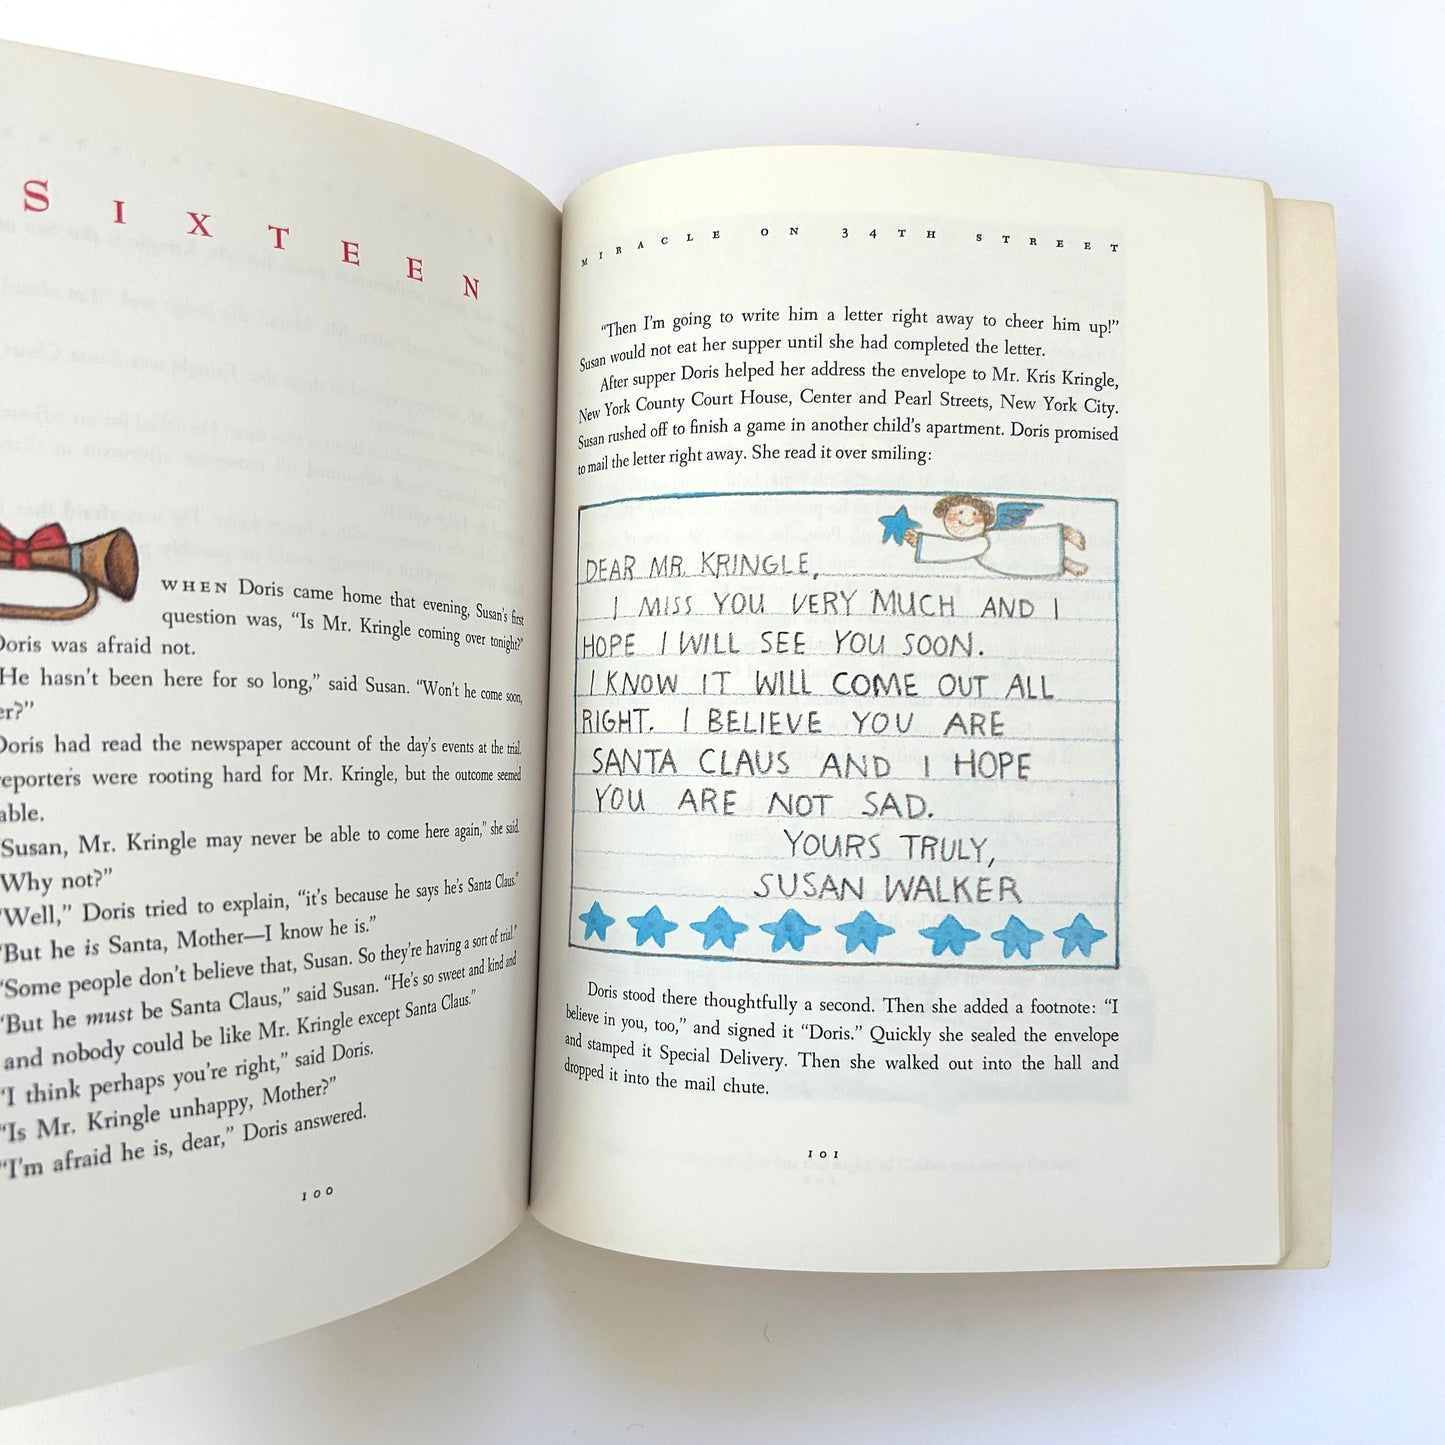 SIXTEEN
WHEN Doris came home that evening, Susan's first
question was, “Is Mr. Kringle coming over tonight?”
Doris was afraid not.
He hasn't been here for so long,” said Susan. “Won't he come soon,
er?”
Doris had read the newspaper account of the day's events at the trial.
eporters were rooting hard for Mr. Kringle, but the outcome seemed
able.
“Susan, Mr. Kringle may never be able to come here again,” she said.
“Why not?”
“Well,” Doris tried to explain, “it's because he says he's Santa Claus.”
“But he is Santa, Mother—I know he is.”
“Some people don't believe that, Susan. So they're having a sort of trial.”
“But he must be Santa Claus,” said Susan. “He's so sweet and kind and
and nobody could be like Mr. Kringle except Santa Claus.”
“I think perhaps you're right,” said Doris.
“Is Mr. Kringle unhappy, Mother?”
“I'm afraid he is, dear,” Doris answered.
100
MIRACLE ON 34TH STREET
“Then I'm going to write him a letter right away to cheer him up!”
Susan would not eat her supper until she had completed the letter.
After supper Doris helped her address the envelope to Mr. Kris Kringle,
New York County Court House, Center and Pearl Streets, New York City.
Susan rushed off to finish a game in another child's apartment. Doris promised
to mail the letter right away. She read it over smiling:
DEAR MR. KRINGLE,
I MISS YOU VERY MUCH AND I
HOPE I WILL SEE YOU SOON.
I KNOW IT WILL COME OUT ALL
RIGHT. I BELIEVE YOU ARE
SANTA CLAUS AND I HOPE
YOU ARE NOT SAD.
YOURS TRULY,
SUSAN WALKER
Doris stood there thoughtfully a second. Then she added a footnote: “I
believe in you, too,” and signed it “Doris.” Quickly she sealed the envelope
and stamped it Special Delivery. Then she walked out into the hall and
dropped it into the mail chute.
101